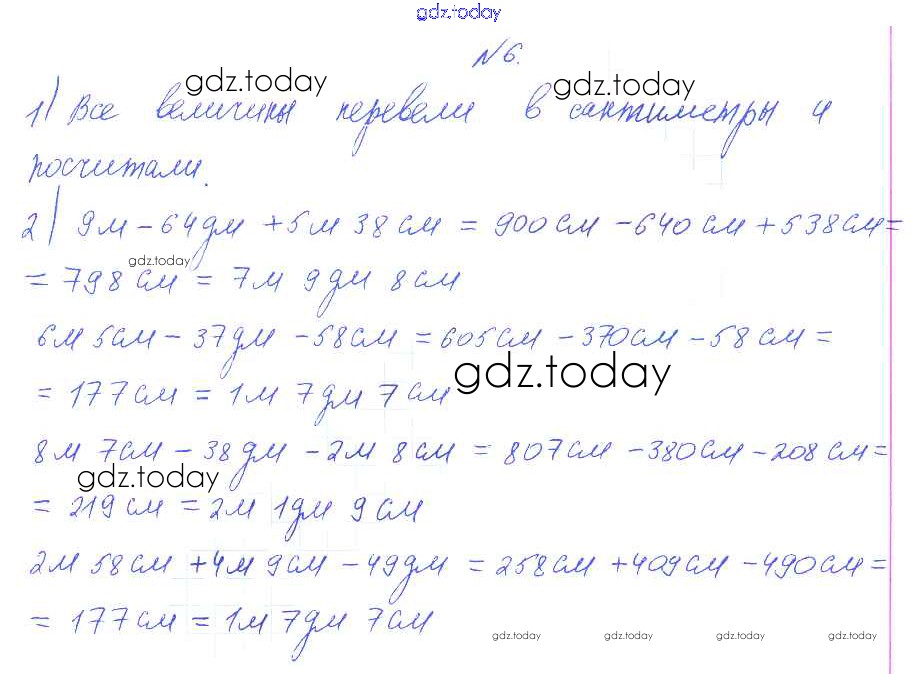 gdz.today
№6.
gdz.today gdz.today
1) Все величины перевели в сантиметры и
посчитали.
2) 9м - 64дм + 5м 38см = 900см - 640см + 538см =
gdz.today
= 798см = 7м 9дм 8см
6м 5см - 37дм - 58см = 605см - 370см - 58см =
gdz.today
= 177см = 1м 7дм 7см
8м 7см - 38дм - 2м 8см = 807см - 380см - 208см =
gdz.today
= 219см = 2м 1дм 9см
2м 58см + 4м 9см - 49дм = 258см + 409см - 490см =
= 177см = 1м 7дм 7см
gdz.today gdz.today gdz.today gdz.today